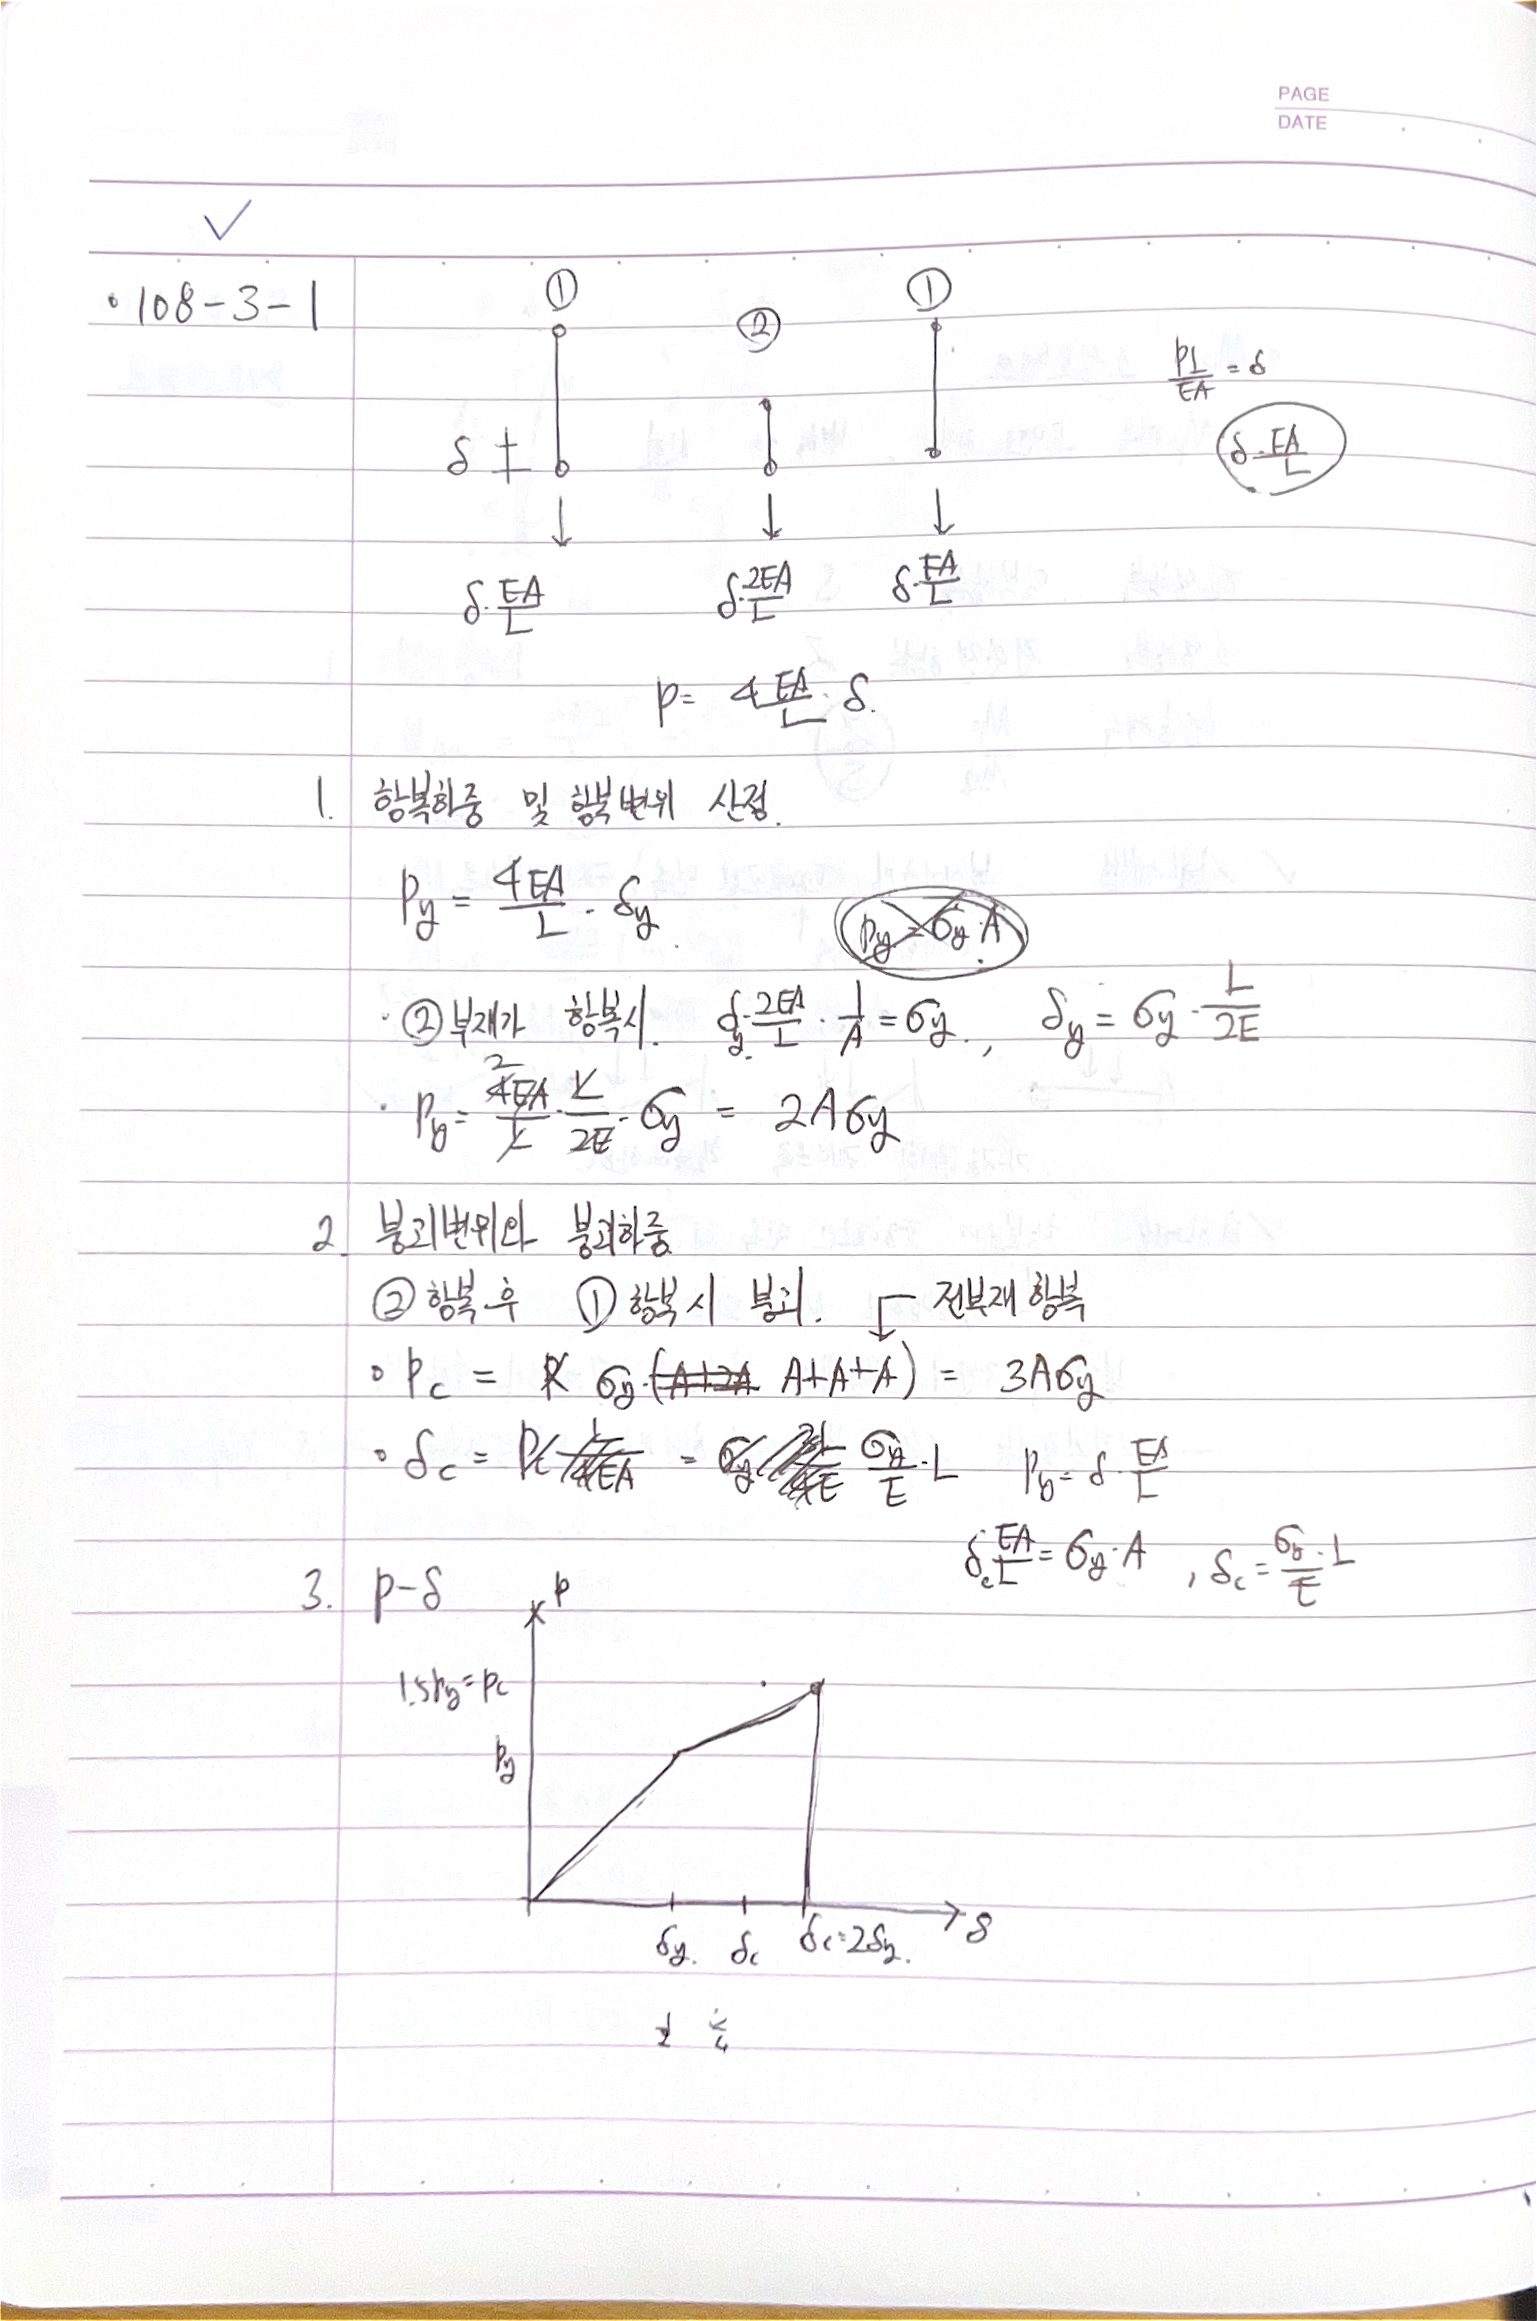 PAGE
DATE
✓
· 108-3-1
① ② ①
PL/EA = δ
δ·EA/L
δ
δ·EA/L δ·2EA/L δ·EA/L
P= 4EA/L δ.
1. 항복하중 및 항복변위 산정.
Py = 4EA/L · δy.
Py = σy·A
· ②부재가 항복시. δy·2EA/L · 1/A = σy., δy = σy · L/2E
· Py = 4EA/L · L/2E · σy = 2Aσy
2
2. 붕괴변위와 붕괴하중
② 항복 후 ① 항복시 붕괴. 전부재 항복
∘ Pc = σy·(A+2A A+A+A) = 3Aσy
∘ δc = Pc L/4EA = σy/E · L Py = δ · EA/L
δc EA/L = σy·A , δc = σy/E · L
3. P-δ
P
1.5Py = Pc
Py
δy. δc δc=2δy. δ